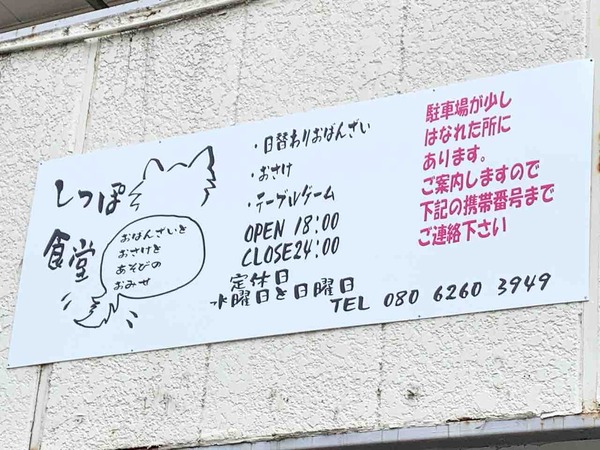 しっぽ
食堂
おばんざいを
おさけを
あそびの
おみせ
・日替わりおばんざい
・おさけ
・テーブルゲーム
OPEN 18:00
CLOSE24:00
定休日
水曜日と日曜日
TEL 080 6260 3949
駐車場が少し
はなれた所に
あります。
ご案内しますので
下記の携帯番号まで
ご連絡下さい